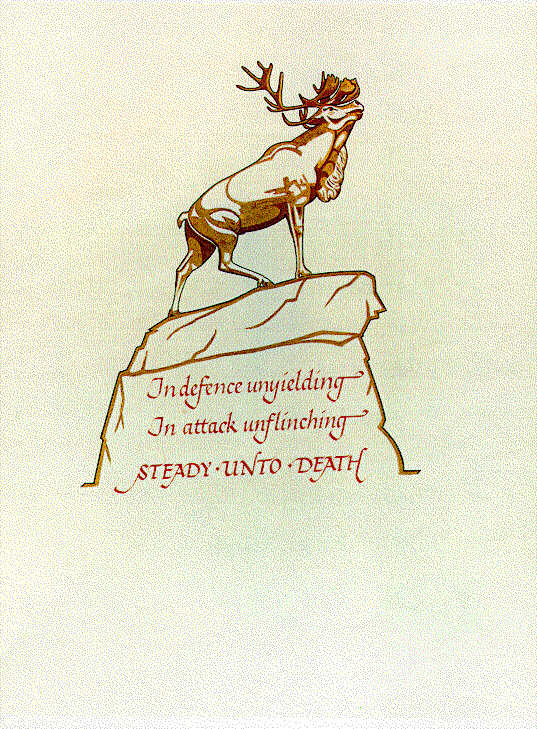 In defence unyielding
In attack unflinching
STEADY · UNTO · DEATH